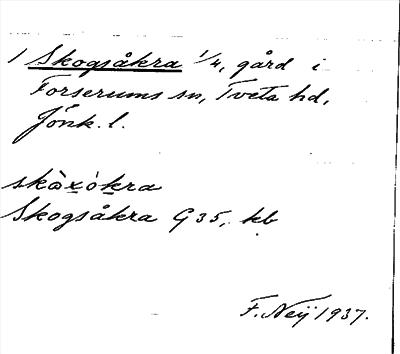 1 Skogsåkra 1/4, gård i
Forserums sn, Tveta hd,
Jönk. l.
skàxókra
Skogsåkra G 35, kb
F. Neij 1937.